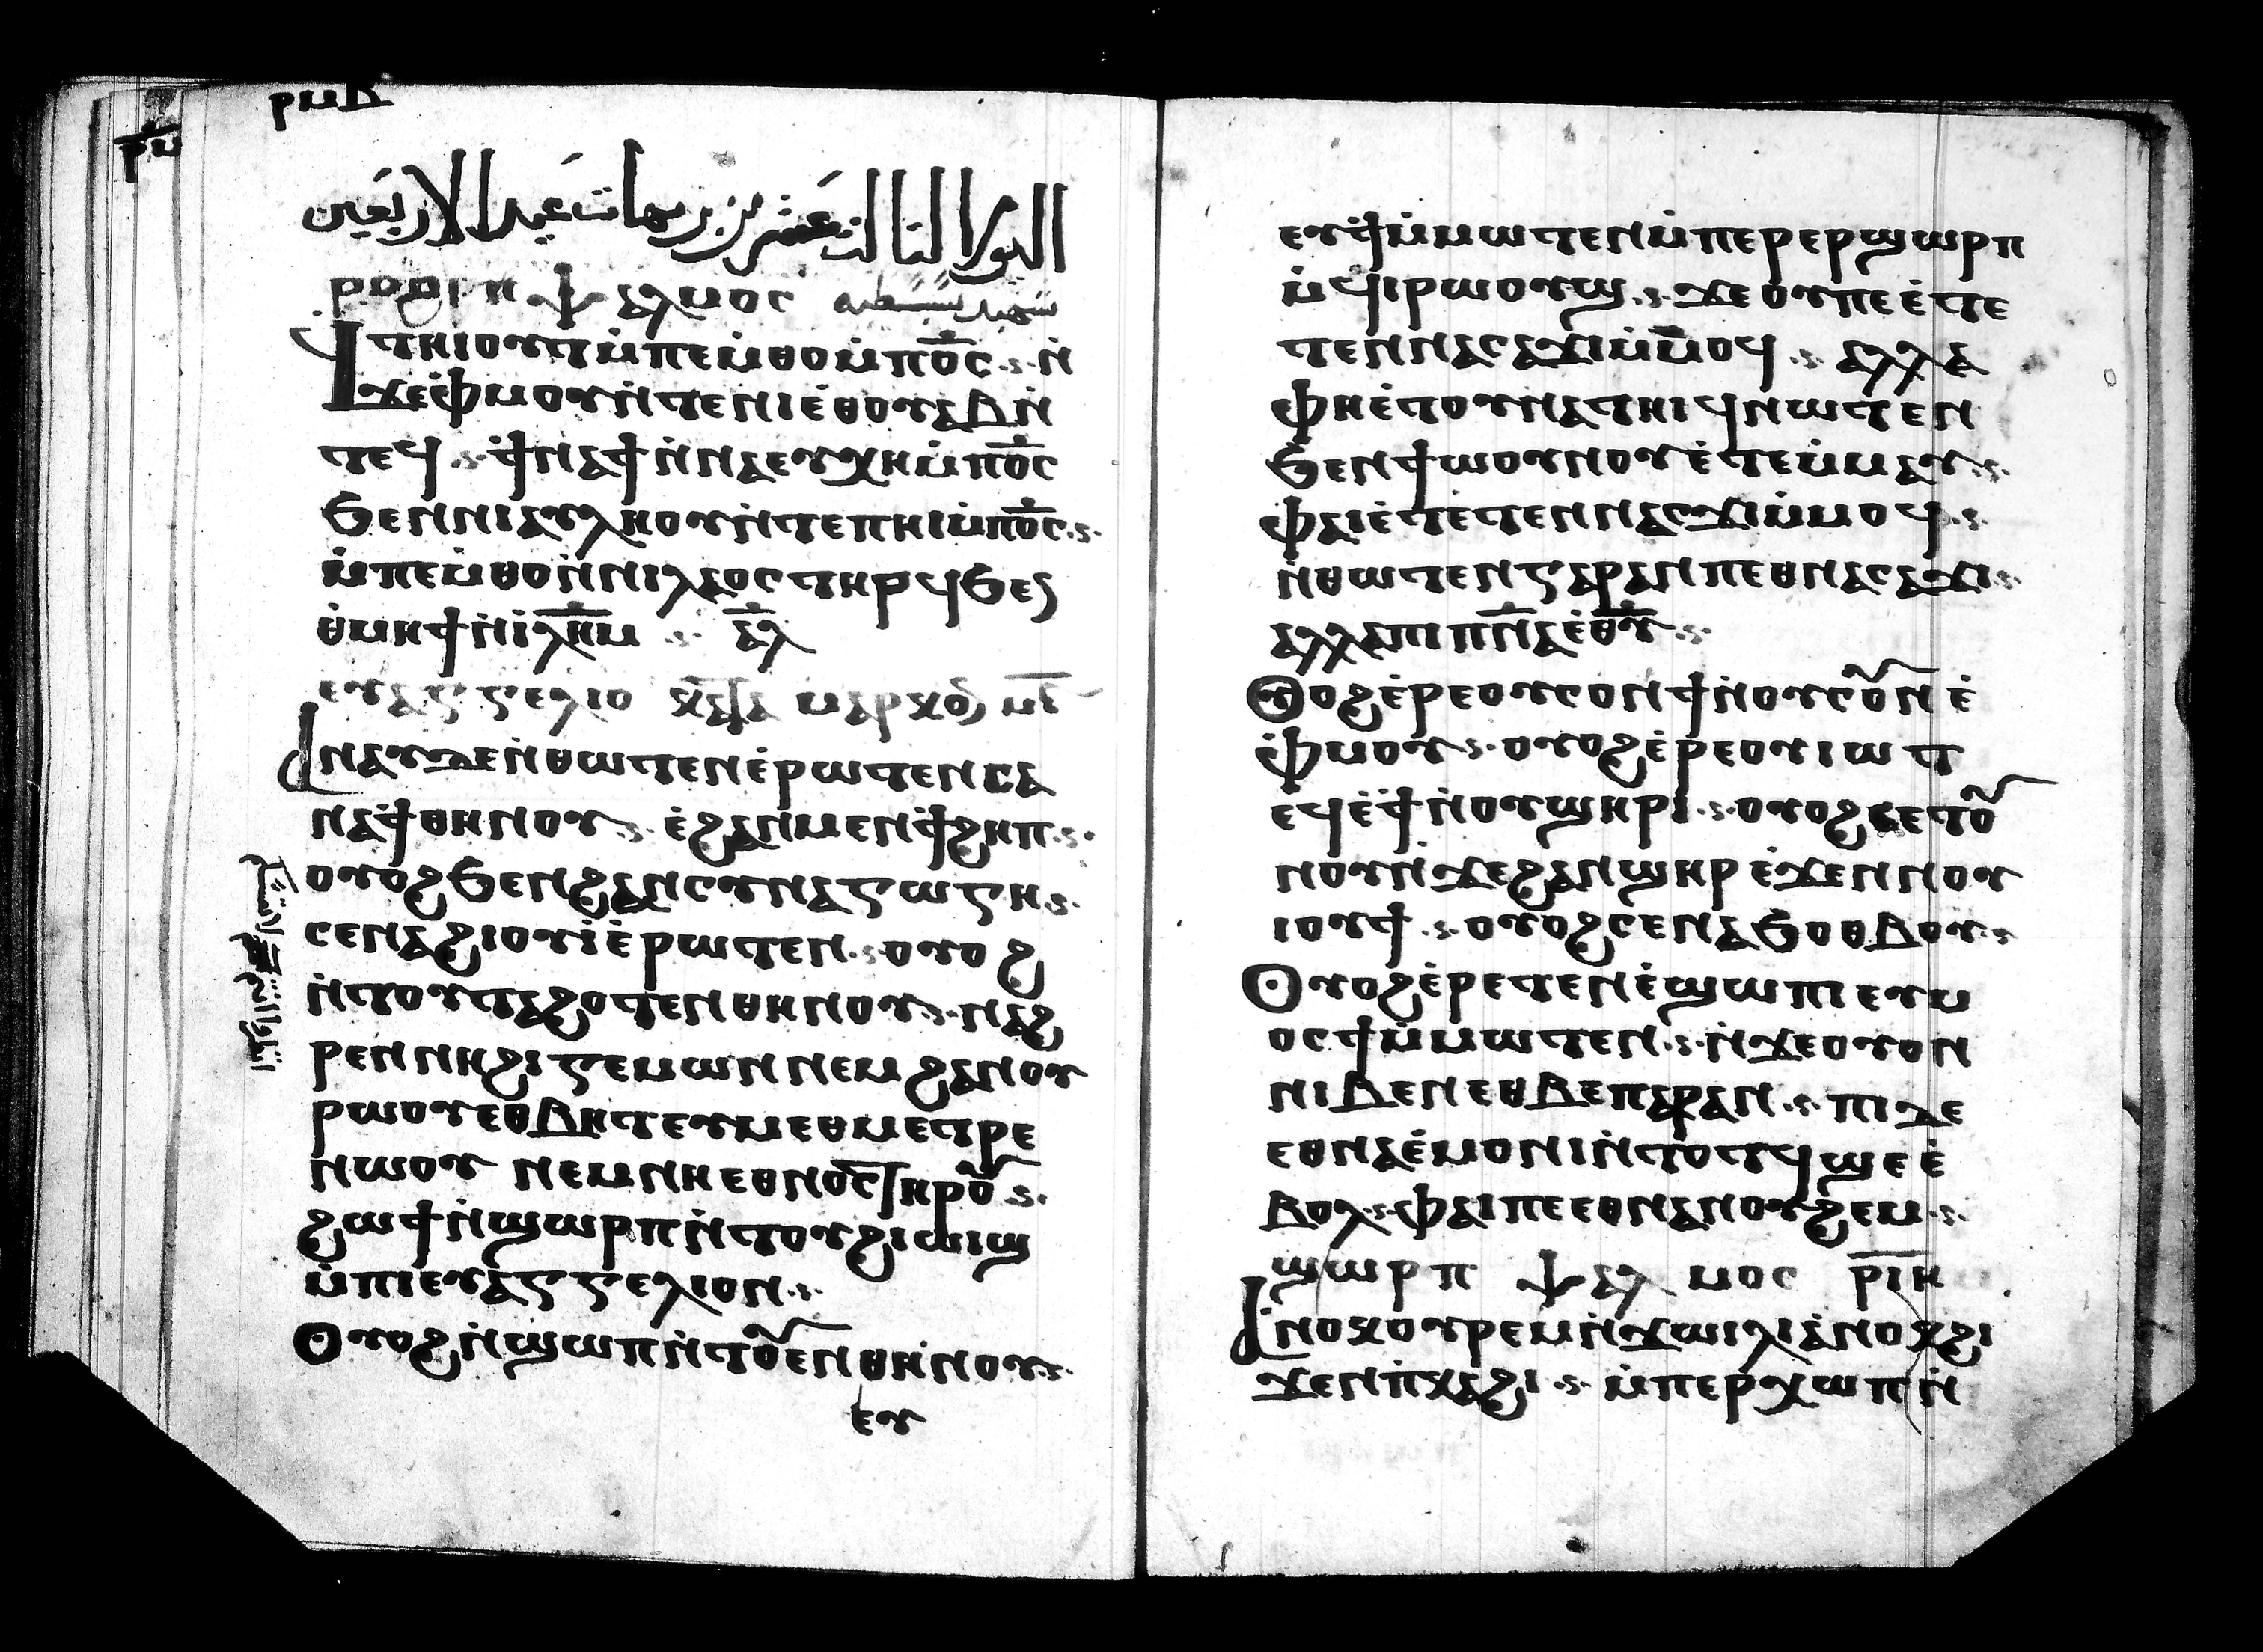 ⲣⲙⲃ
ⲣⲙ
اليوم الثالث عشر من برمهات عيد الاربعين
ⲣⲟⲩϩⲓ ⲛ ⲯⲁⲗⲙⲟⲥ شهيد بسبسطيه
ϥⲧⲏⲓⲟⲩⲧ ⲙ̇ⲡⲉⲙ̇ⲑⲟ ⲙ̇ⲡⲟ̅ⲥ̅ ⲛ̇
ϫⲉ ⲫ̇ⲙⲟⲩ ⲛ̇ⲧⲉ ⲛⲓⲉ̇ⲑⲟⲩⲁⲃ ⲛ̇
ⲧⲉϥ ϯⲛⲁϯ ⲛ̇ⲛⲁⲉⲩⲭⲏ ⲙ̇ⲡⲟ̅ⲥ̅
ϧⲉⲛ ⲛⲓⲁⲩⲗⲏⲟⲩ ⲛ̇ⲧⲉ ⲡⲏⲓ ⲙ̇ⲡⲟ̅ⲥ̅
ⲙ̇ⲡⲉⲙ̇ⲑⲟ ⲛ̇ⲛⲓⲗⲁⲟⲥ ⲧⲏⲣϥ ϧⲉⲛ
ⲑ̇ⲙⲏϯ ⲛ̇ⲓ̇ⲗ̅ⲏ̅ⲙ̅ ⲁ̅ⲗ̅
ⲉⲩⲁⲅⲅⲉⲗⲓⲟ ⲕⲁⲧⲁ ⲙⲁⲣⲕⲟⲛ ⲙ̅ⲓ̅
ⲁⲛⲁⲩ ⲇⲉ ⲛ̇ⲑⲱⲧⲉⲛ ⲉ̇ⲣⲱⲧⲉⲛ ⲥⲉ
ⲛⲁϯ ⲑⲏⲛⲟⲩ ⲉ̇ϩⲁⲛⲙⲉⲛϯϩⲏⲡ
ⲟⲩⲟϩ ϧⲉⲛ ϩⲁⲛⲥⲩⲛⲁⲅⲱⲅⲏ
ⲥⲉⲛⲁϩⲓⲟⲩⲓ̇ ⲉ̇ⲣⲱⲧⲉⲛ ⲟⲩⲟϩ
ⲛ̇ⲧⲟⲩⲧⲁϩⲟⲧⲉⲛ ⲑⲏⲛⲟⲩ ⲛⲁϩ
ⲣⲉⲛ ⲛⲏϩⲓⲅⲉⲙⲱⲛ ⲛⲉⲙ ϩⲁⲛⲟⲩ
ⲣⲱⲟⲩ ⲉⲑⲃⲏⲧ ⲉⲩⲙⲉⲑⲙⲉⲧⲣⲉ
ⲛⲱⲟⲩ ⲛⲉⲙ ⲛⲏⲉⲑⲛⲟⲥ ⲧⲏⲣⲟⲩ
ϩⲱϯ ⲛ̇ϣⲱⲣⲡ ⲛ̇ⲧⲟⲩϩⲓⲱⲓϣ
ⲙ̇ⲡⲓⲉⲩⲁⲅⲅⲉⲗⲓⲟⲛ
ⲟⲩⲟϩ ⲛ̇ϣⲱⲡ ⲛ̇ⲧⲟⲩⲉⲛ ⲑⲏⲛⲟⲩ
ⲉⲩ
ⲉⲩϯ ⲙ̇ⲙⲱⲧⲉⲛ ⲙ̇ⲡⲉⲣⲉⲣϣⲱⲣⲡ
ⲙ̇ϥⲓⲣⲱⲟⲩϣ ϫⲉ ⲟⲩ ⲡⲉ ⲉ̇ⲧⲉ
ⲧⲉⲛⲛⲁⲥⲁϫⲓ ⲙ̇ⲙⲟϥ ⲁⲗⲗⲁ
ⲫⲏⲉ̇ⲧⲟⲩⲛⲁⲧⲏⲓϥ ⲛⲱⲧⲉⲛ
ϧⲉⲛ ϯⲱⲟⲩⲛⲟⲩ ⲉ̇ⲧⲉⲙ̇ⲙⲁⲩ
ⲫⲁⲓ ⲉ̇ⲧⲉⲧⲉⲛⲛⲁⲥⲁϫⲓ ⲙ̇ⲙⲟϥ
ⲛ̇ⲑⲱⲧⲉⲛ ⲅⲁⲣ ⲁⲛ ⲡⲉⲑⲛⲁⲥⲁϫⲓ
ⲁⲗⲗⲁ ⲡⲓⲡ̅ⲛ̅ⲁ̅ ⲉ̇ⲑ̅ⲩ̅
ⲟⲩⲟϩ ⲉ̇ⲣⲉ ⲟⲩⲥⲟⲛ ϯ ⲛ̇ⲟⲩⲥⲟⲛ ⲉ̇
ⲫ̇ⲙⲟⲩ ⲟⲩⲟϩ ⲉ̇ⲣⲉ ⲟⲩⲓⲱⲧ
ⲉϥⲉ̇ϯ ⲛ̇ⲟⲩϣⲏⲣⲓ ⲟⲩⲟϩ ⲥⲉⲧⲟⲩ
ⲛⲟⲩ ⲛ̇ϫⲉ ϩⲁⲛϣⲏⲣ ⲉ̇ϫⲉⲛ ⲛⲟⲩ
ⲓⲟⲩϯ ⲟⲩⲟϩ ⲥⲉⲛⲁϧⲟⲑⲃⲟⲩ
ⲟⲩⲟϩ ⲉ̇ⲣⲉⲧⲉⲛⲉ̇ϣⲱⲡⲓ ⲉⲩⲙ
ⲟⲥϯ ⲙ̇ⲙⲱⲧⲉⲛ ⲛ̇ϫⲉ ⲟⲩⲟⲛ
ⲛⲓⲃⲉⲛ ⲉⲑⲃⲉ ⲡⲁⲣⲁⲛ ⲡⲓⲇⲉ
ⲉⲑⲛⲁⲉ̇ⲙⲟⲛⲓ ⲛ̇ⲧⲟⲧϥ ϣⲉ ⲉ̇
ⲃⲟⲗ ⲫⲁⲓ ⲡⲉ ⲉⲑⲛⲁⲛⲟⲩϩⲉⲙ
ϣⲱⲣⲡ ⲯⲁⲗⲙⲟⲥ ⲣ̅ⲓ̅ⲏ̅
ⲁⲛⲟⲕ ⲟⲩⲣⲉⲙⲛ̇ϫⲱⲓⲗⲓ ⲁⲛⲟⲕ ϩⲓ
ϫⲉⲛ ⲡ̇ⲕⲁϩⲓ ⲙ̇ⲡⲉⲣⲭⲱⲡ ⲛ̇